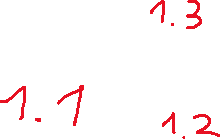 1.3
1.1
1.2